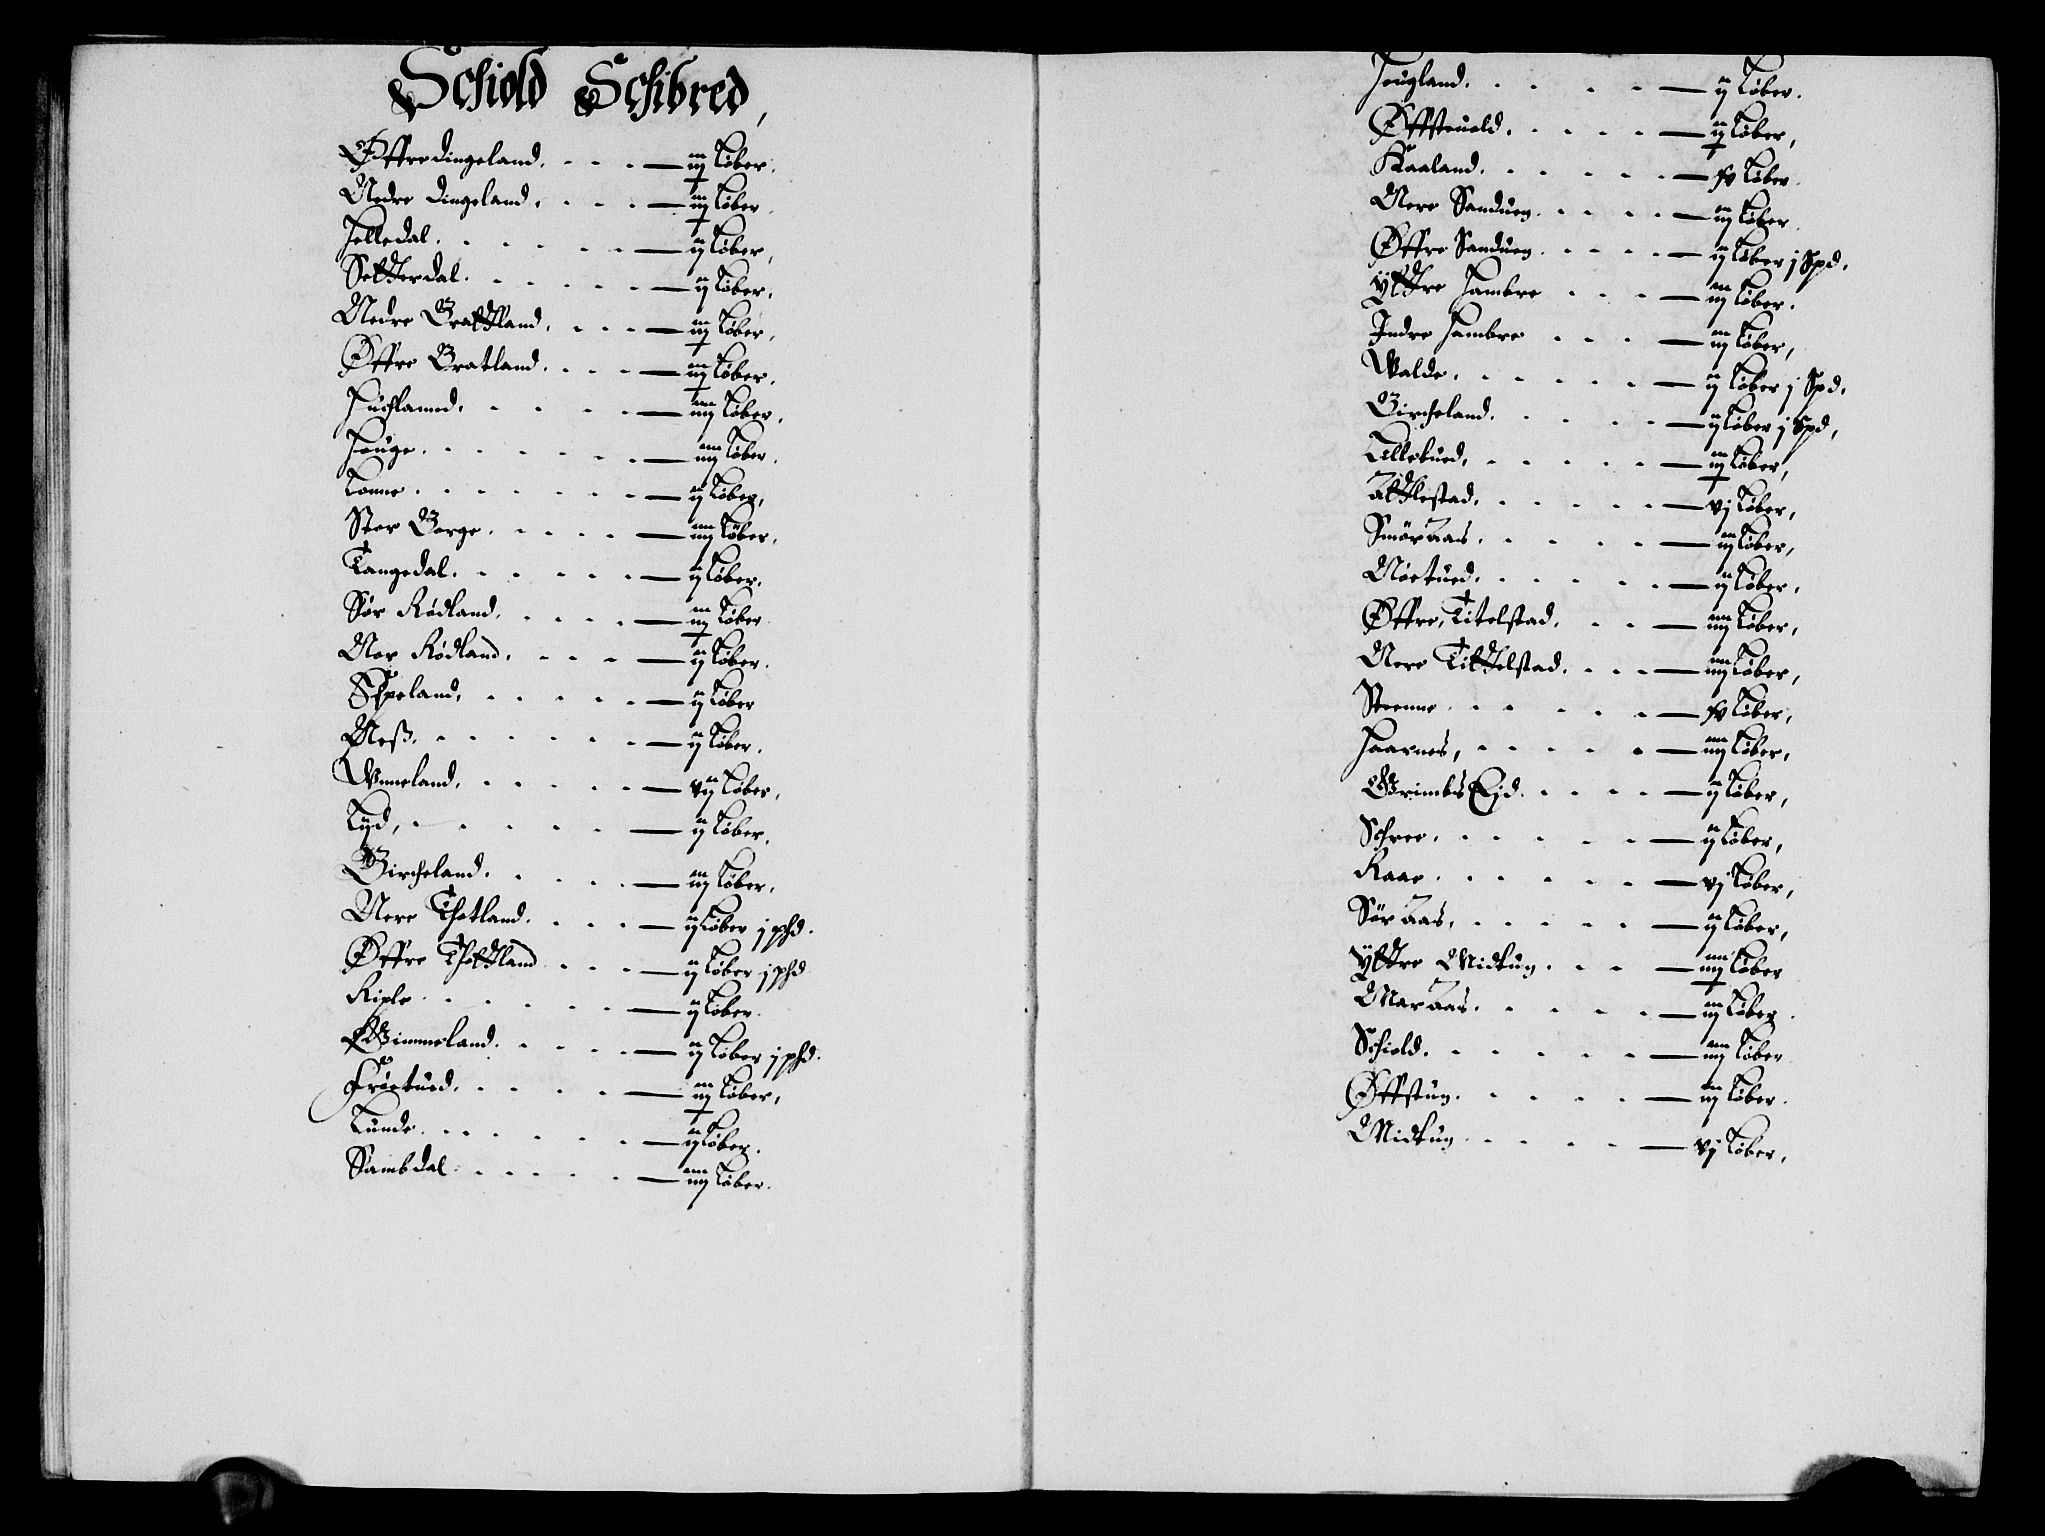 Schiold Schibred,
Øffre dingeland. . . . — iij Løber.
Nedre dingeland. . . . — iij Løber
Helledal. . . . . . — ij Løber,
Setterdal. . . . . . — ij Løber.
Nedre Brattland. . . . — iij Løber,
Øffre Bratland. . . . — iij Løber.
Huchlamed. . . . . — iiij Løber.
Houge. . . . . . — iiij Løber.
Lonne. . . . . . — ij Løber,
Stor Borge. . . . . — iiij Løber.
Tangedal. . . . . . — ij Løber.
Sør Rødland. . . . . — iij Løber
Nor Rødland. . . . — ij Løber.
Espeland. . . . . . — ij Løber
Neß. . . . . . . — ij Løber.
Unneland. . . . . . — vij Løber.
Lyd, . . . . . — ij Løber.
Bircheland. . . . . — iij Løber.
Nere Thotland. . . . — ij Løber j phd.
Øffre Thottland . . . — ij Løber j phd
Riple. . . . . . — ij Løber.
Gimmeland. . . . . — ij Løber j phd.
Frøetued. . . . . — iij Løber,
Lunde. . . . . . . — ij Løber.
Sambdal. . . . . — iiij Løber.
Hougland. . . . . — ij Løber.
Øffsteuold. . . . . — ij Løber,
Kaaland. . . . . . — fv Løber.
Nere Sanduen. . . . . — iij Løber.
Øffre Sanduen. . . . . — ij Løber j Spd.
Yttre Hambre . . . — iij Løber.
Indre Hambre . . . — iij Løber,
Walde. . . . . . — ij Løber j Spd.
Bircheland. . . . . — ij Løber j Spd,
Lilletued, . . . . . — ij Løber,
Attlestad. . . . . . — vj Løber,
Smør Aas. . . . . — iij Løber,
Nøetued. . . . . . — ij Løber.
Øffre, Titelstad. . . . — iiij Løber,
Nere Tittelstad. . . . — iiij Løber,
Steenne. . . . . . — fv Løber,
Haarnes, . . . . . — iiij Løber,
Grimbs Ejd. . . . . — ij Løber,
Schree. . . . . . — ij Løber,
Raae. . . . . . — vj Løber,
Sør Aas, . . . . . — ij Løber,
Yttre Midtun. . . . — iiij Løber
Mar Aas. . . . . . — iij Løber.
Schiold. . . . . . — iiij Løber
Øffstun. . . . . . — iij Løber.
Midtun. . . . . — vj Løber.